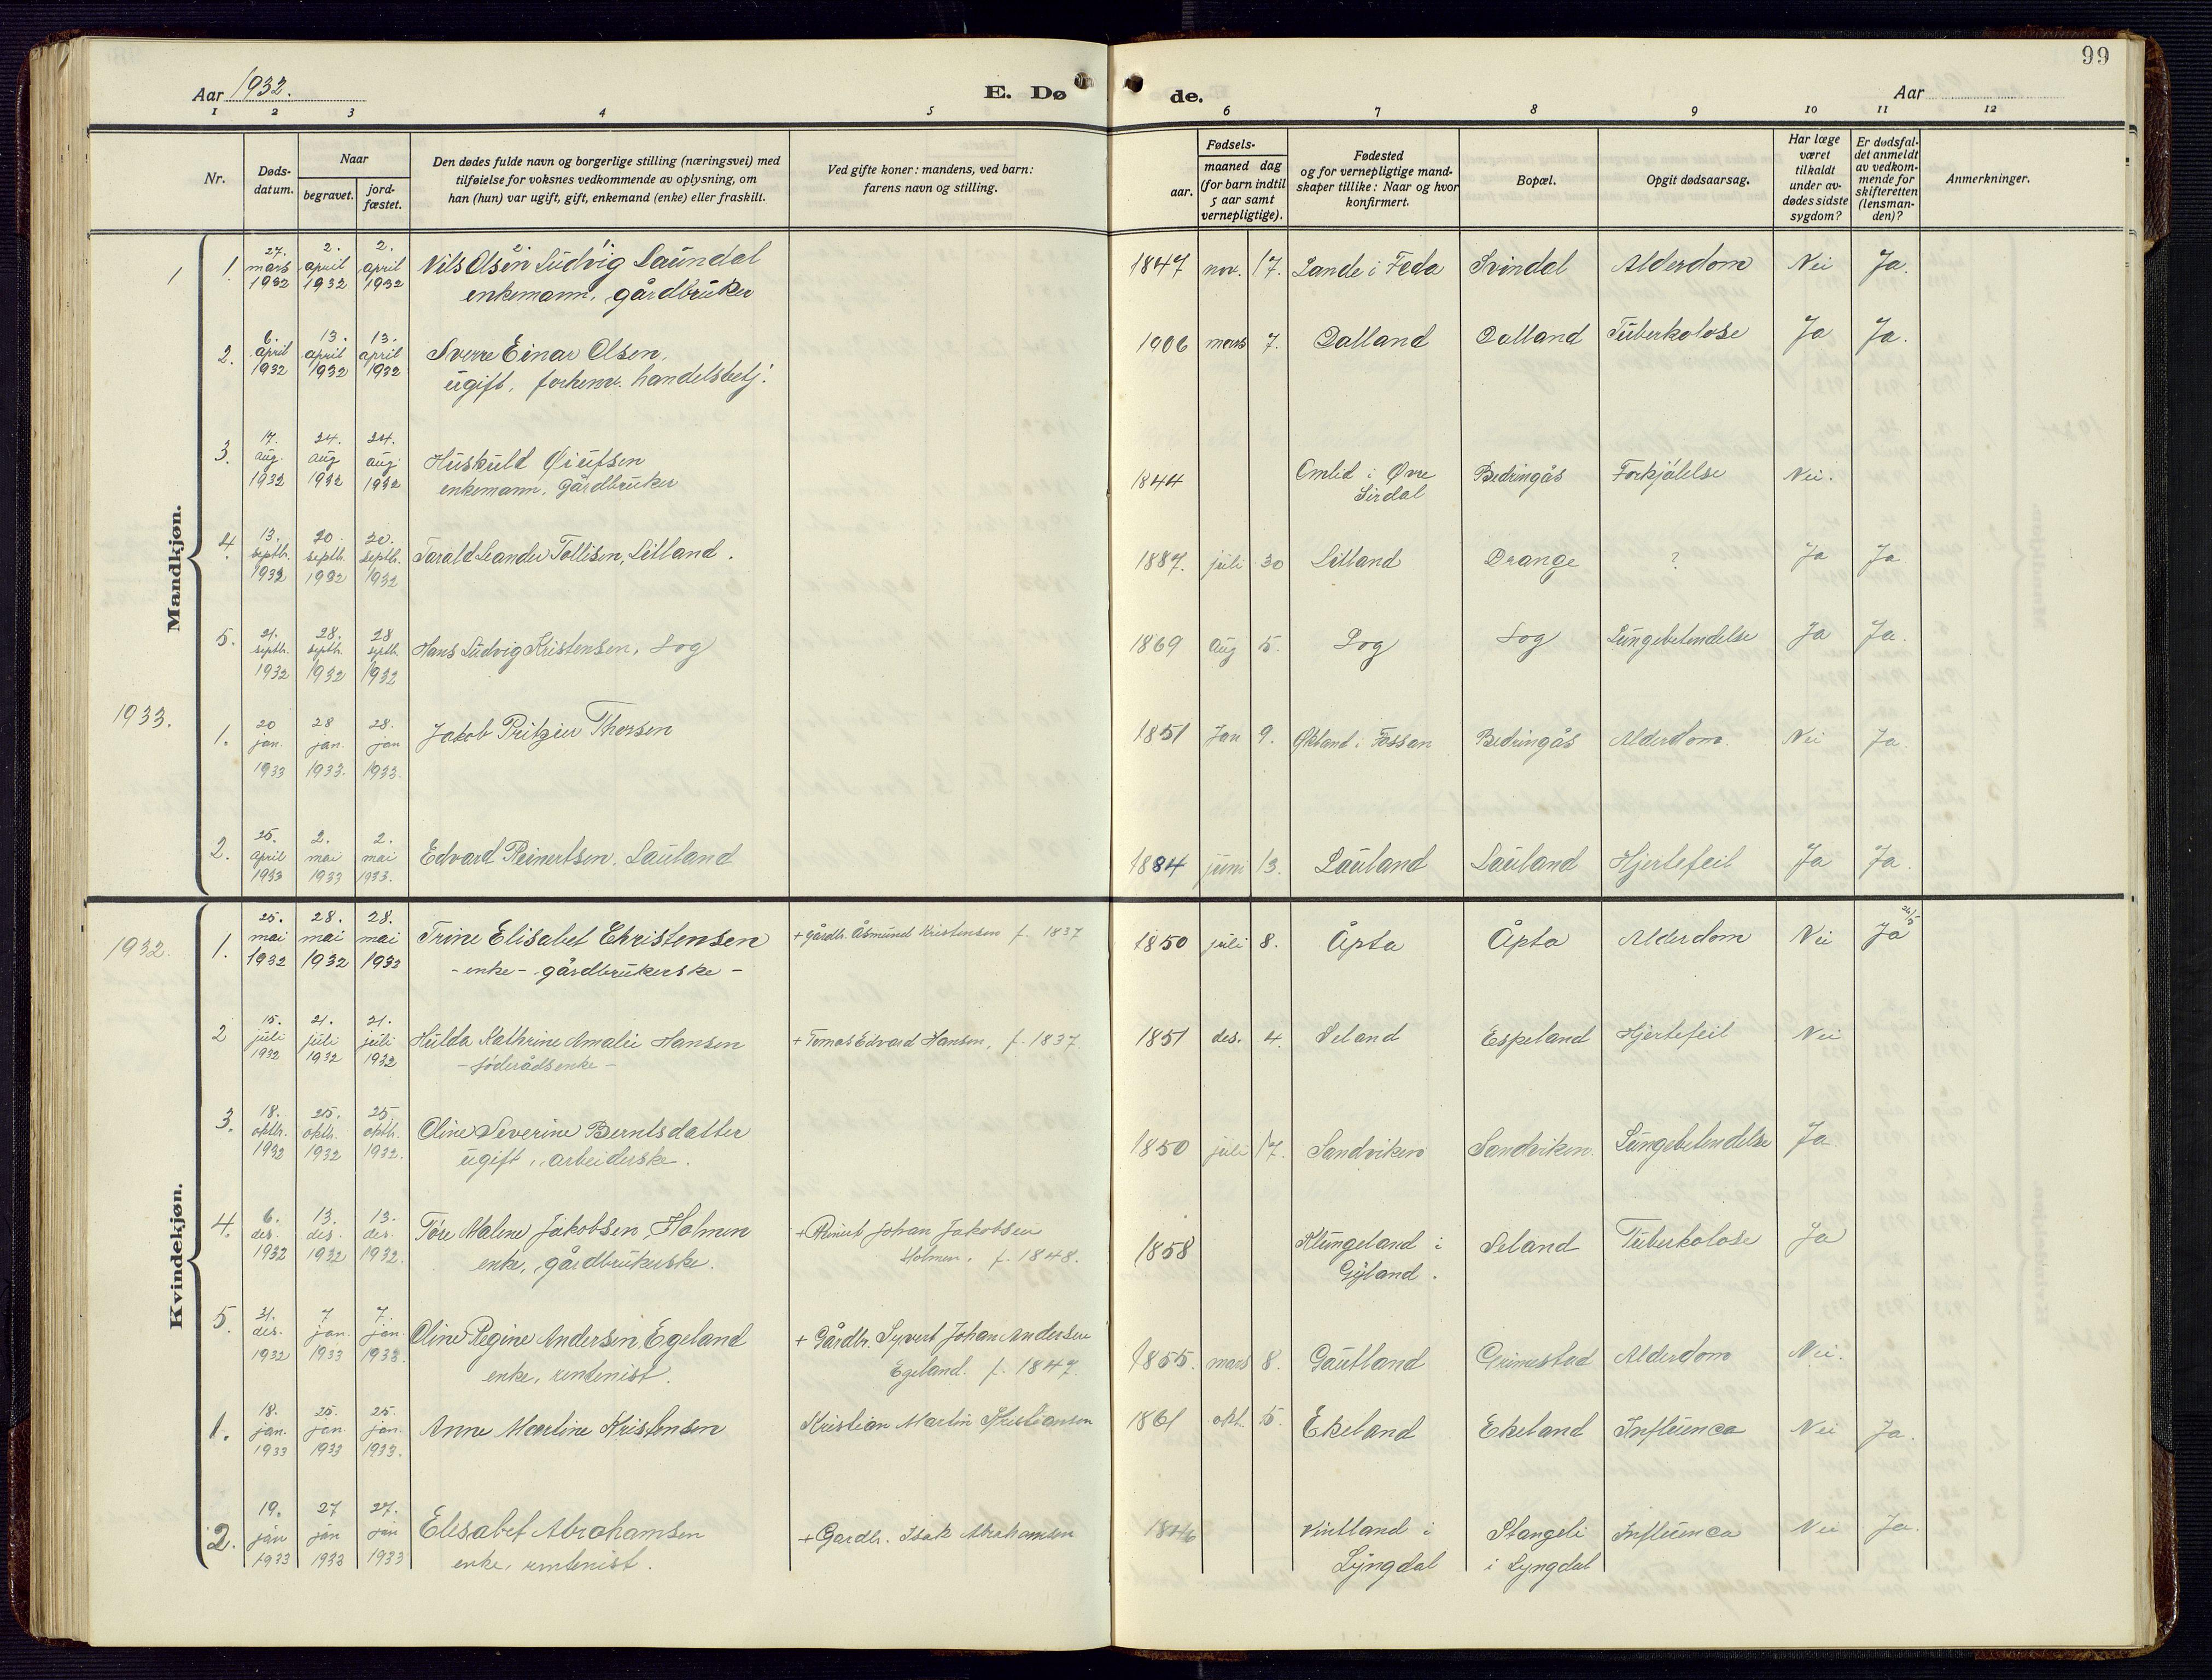 99
Aar 1932.
E. Dø de.
Aar
1 2 3 4 5 6 7 8 9 10 11 12
Nr.
Døds-
datum.
Naar
begravet.
jord-
fæstet.
Den dødes fulde navn og borgerlige stilling (næringsvei) med
tilføielse for voksnes vedkommende av oplysning, om
han (hun) var ugift, gift, enkemand (enke) eller fraskilt.
Ved gifte koner: mandens, ved barn:
farens navn og stilling.
Fødsels-
aar.
maaned dag
(for barn indtil
5 aar samt
vernepligtige).
Fødested
og for vernepligtige mand-
skaper tillike: Naar og hvor
konfirmert.
Bopæl.
Opgit dødsaarsag.
Har læge
været
tilkaldt
under av-
dødes sidste
sygdom?
Er dødsfal-
det anmeldt
av vedkom-
mende for
skifteretten
(lensman-
den)?
Anmerkninger.
Mandkjøn.
1
27. 2. 2.
1. mars april april Nils Olsen Ludvig Laundal 1847 nov. 17. Lande i Feda Svindal Alderdom Nei Ja.
1932 1932 1932 enkemann, gårdbruker
6. 13. 13.
2. april april april Sverre Einar Olsen, 1906 mars 7. Dalland Dalland Tuberkolose Ja Ja.
1932 1932 1932 ugift, forhenv. handelsbetj.
17. 24. 24.
3. aug. aug aug. Huskuld Øiufsen 1844 Omlid i Øvre Bedringås Forkjølelse Nei.
1932 1932 1932 enkemann, gårdbruker Sirdal
13. 20. 20.
4. septb. septb. septb. Tarald Leander Tollisen, Litland. 1887. juli 30 Litland Drange ? Ja Ja
1932 1932 1932
21. 28. 28
5. septb. septb. septb. Hans Ludvig Kristensen, Log 1869 Aug 5. Log Log Lungebetendelse Ja Ja.
1932 1932 1932
1933.
20 28 28.
1. jan. jan. jan Jakob Pritzier Thorsen 1851 Jan 9. Øksland i Fossan Bedringås Alderdom. Nei Ja.
1933 1933. 1933.
25. 2. 2.
2. april mai mai Edvard Reinertsen, Lauland 1884 juni 13. Lauland Lauland Hjertefeil Ja Ja.
1933 1933 1933.
Kvindekjøn.
1932.
25. 28. 28.
1. mai mai mai Trine Elisabet Christensen + gårdbr. Åsmund Kristensen f. 1837 1850 juli 8. Åpta Åpta Alderdom Nei Ja
1932 1932 1932 - enke - gårdbrukerske -
15. 21. 21.
2 juli juli juli Hulda Kathrine Amalie Hansen + Tomas Edvard Hansen, f. 1837 1851 des. 4. Seland Espeland Hjertefeil Nei
1932 1932 1932 - føderådsenke -
18. 25. 25.
3. oktb. oktb. oktb. Oline Severine Berntsdatter 1850 juli 17. Sandviken Sandviken. Lungebetendelse Ja
1932 1932 1932. ugift, arbeiderske.
6. 13. 13.
4. des. des. des. Tore Malene Jakobsen, Holmen + Reinert Johan Jakobsen 1858 Klungeland i Seland Tuberkolose Ja
1932 1932 1932. enke, gårdbrukerske. Holmen, f. 1848. Gyland.
31. 7 7.
5. des. jan. jan. Oline Regine Andersen Egeland + Gårdbr. Syvert Johan Andersen 1855. mars 8. Gautland Grimestad Alderdom Nei.
1932 1933 1933. enke, rentenist. Egeland. f. 1847.
18. 25. 25.
1. jan. jan jan. Anne Martine Kristensen Kristian Martin Kristiansen 1861 okt. 5. Ekeland Ekeland Influenca Nei Ja.
1933 1933 1933.
19. 27 27.
2. jan jan jan Elisabet Abrahamsen + Gardbr. Isak Abrahamsen 1846 Kvintland i Stangeli Influenca Nei Ja.
1933 1933 1933 enke, rentenist. Lyngdal i Lyngdal